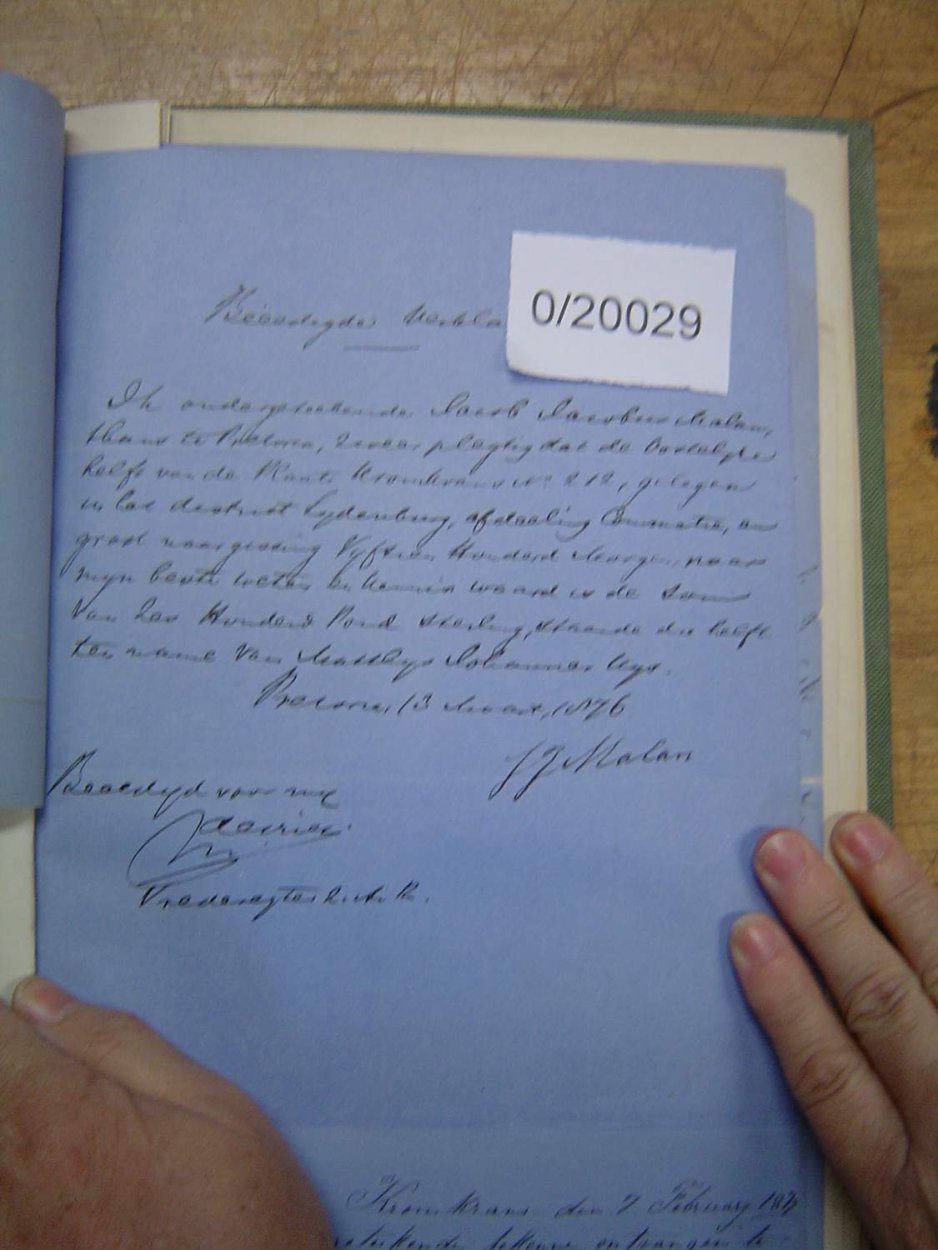 Beëedigde Verkla
0/20029
Ik ondergeteekende Jacob Jacobus Malan,
thans te Pretoria, zweer plegtig dat de Oostelyke
helft van de Plaats Kromkrans No 212, gelegen
in het district Lydenburg, afdeeling Commatie, en
groot naar gissing Vyftien Honderd Morgen, naar
myn beste weten en kennis waard is de Som
Van Zes Honderd Pond Sterling, staande die helft
ten name Van Matthys Johannes Uys.
Pretoria, 13 Maart, 1876
JJ Malan
Beëedigd voor my
Vrederegter
Kromkrans den 7 February 187
tekende bekenne ontvangen te